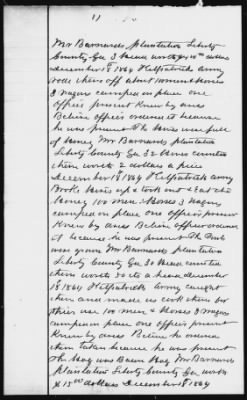 Mr Barnards Plantation Liberty
County Ga 3 head worth 15 00 dollars
December 18 1864 Kilpatricks army
rode them off about 100 men & horses
3 wagons camped on place one
officer present Knew by ones
Believe officers ordered it because
he was present The hives were full
of honey Mr Barnards plantation
Liberty County Ga 32 hives counted
them worth 2 dollars a piece
December 18 1864 Kilpatricks Army
Broke hives up & took out & eat the
honey 100 men & horses 3 wagons
camped on place one officer present
Knew by ones Believe officer ordered
it because he was present The
were grown Mr Barnards plantation
Liberty County Ga 30 head counted
them worth 30 cts a head december
18 1864 Kilpatricks Army caught
them and made us cook them for
their use 100 men & horses 3 wagons
camped on place one officer present
Knew by ones Believe he ordered
them taken because he was present
The Hog was Bacon Hog Mr Barnards
Plantation Liberty County Ga worth
$15 00 dollars December 18 1864